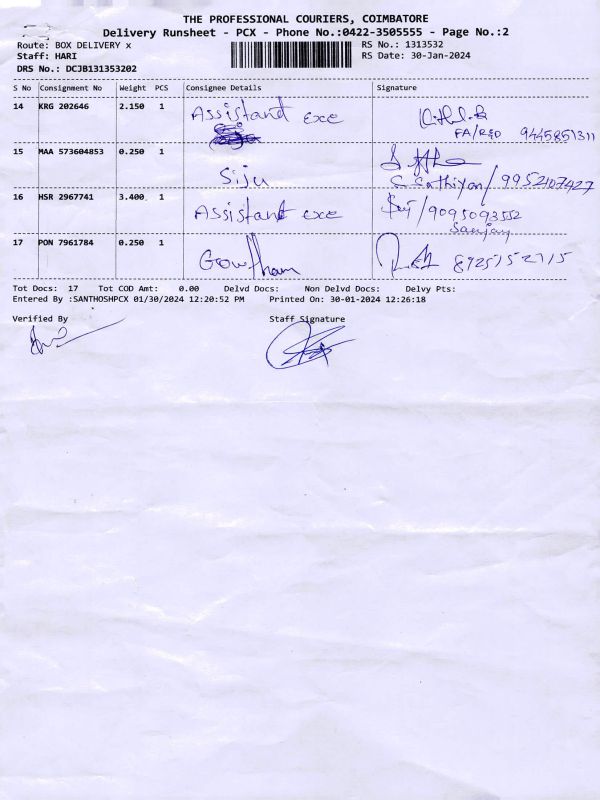 THE PROFESSIONAL COURIERS, COIMBATORE
Delivery Runsheet - PCX - Phone No.:0422-3505555 - Page No.:2
Route: BOX DELIVERY x
RS No.: 1313532
Staff: HARI
RS Date: 30-Jan-2024
DRS No.: DCJB131353202
S No Consignment No Weight PCS Consignee Details Signature
14 KRG 202646 2.150 1 Assistand exe
FA/R&D 9445851311
15 MAA 573604853 0.250 1 Siju
S Sathiyan/9952107427
16 HSR 2967741 3.400 1 Assistant exe /9095093552
Sanjay
17 PON 7961784 0.250 1 Gowtham 8925152715
Tot Docs: 17 Tot COD Amt: 0.00 Delvd Docs: Non Delvd Docs: Delvy Pts:
Entered By :SANTHOSHPCX 01/30/2024 12:20:52 PM Printed On: 30-01-2024 12:26:18
Verified By Staff Signature